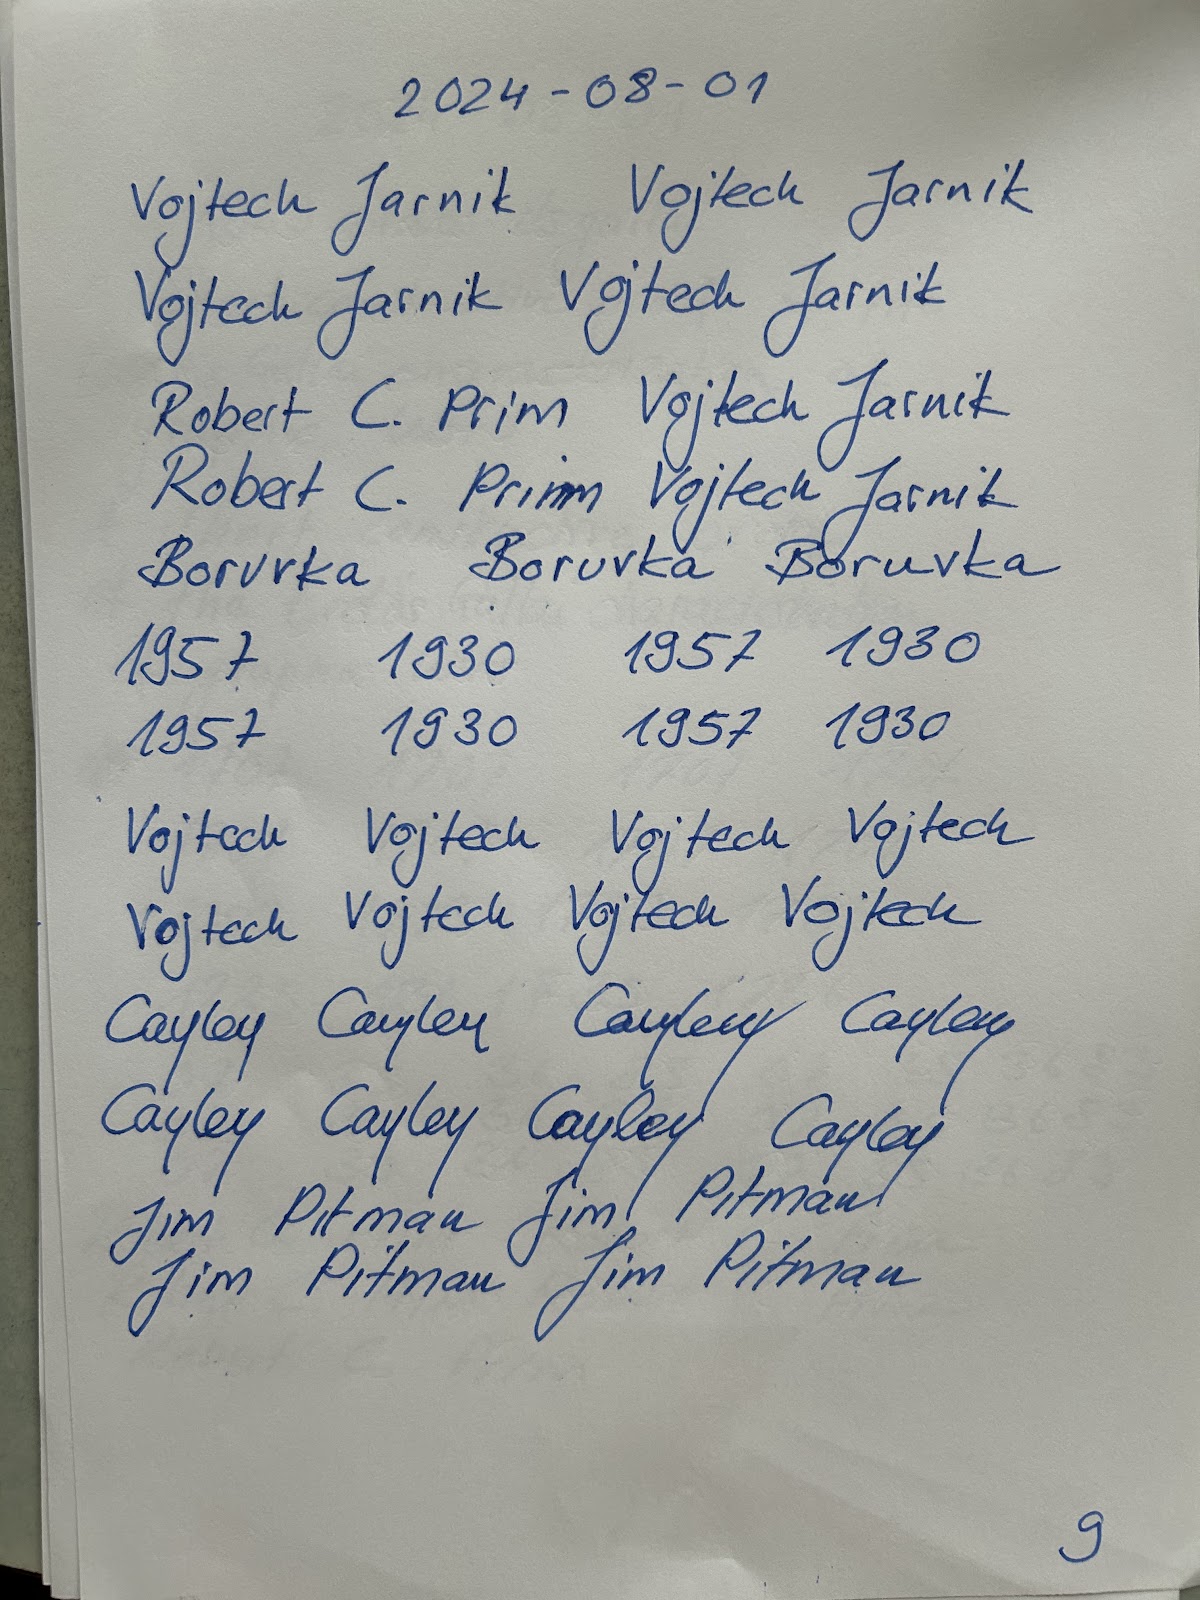 2024-08-01
Vojtech Jarnik Vojtech Jarnik
Vojtech Jarnik Vojtech Jarnik
Robert C. Prim Vojtech Jarnik
Robert C. Prim Vojtech Jarnik
Boruvka Boruvka Boruvka
1957 1930 1957 1930
1957 1930 1957 1930
Vojtech Vojtech Vojtech Vojtech
Vojtech Vojtech Vojtech Vojtech
Cayley Cayley Cayley Cayley
Cayley Cayley Cayley Cayley
Jim Pitman Jim Pitman
Jim Pitman Jim Pitman
9